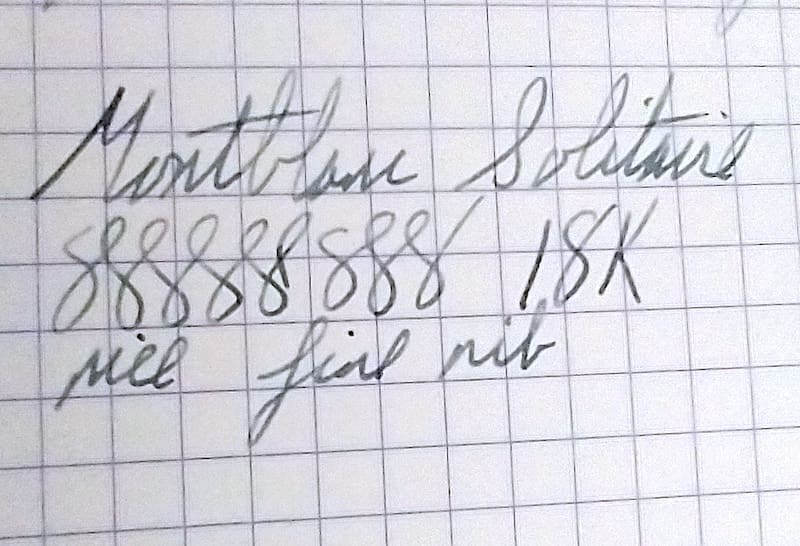 Montblanc Solitaire
88888888 18K
nice fine nib